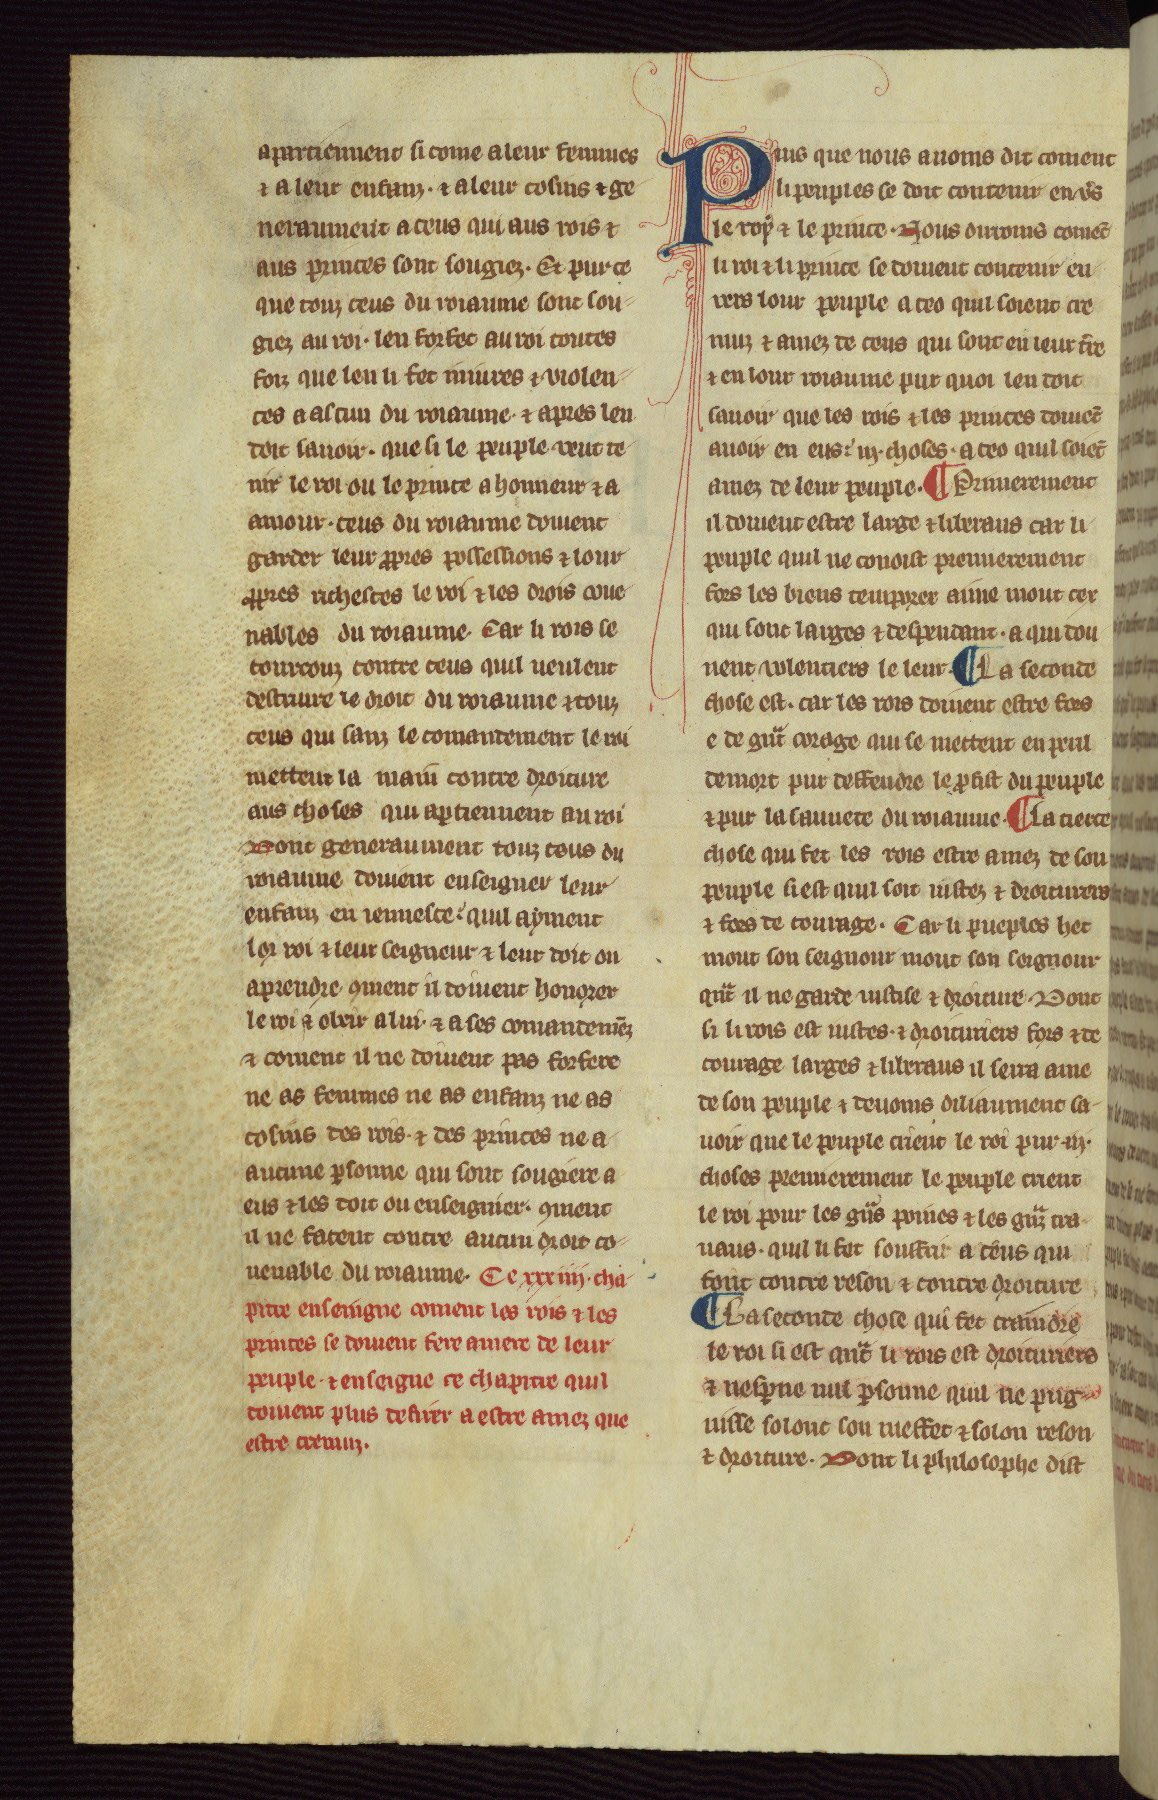 apartienent si come a leur femmes
⁊ a leur enfanz · ⁊ a leur cosins ⁊ ge
neraument a ceus qui aus rois ⁊
aus princes sont sougiez · Et pur ce
que touz ceus du roiaume sont sou-
giez au roi · len forfet au roi toutes
foiz que len li fet iniures ⁊ violen-
ces a ascun du roiaume · ⁊ apres len
doit savoir · que si le peuple veut te-
nir le roi ou le prince a honneur ⁊ a
amour · ceus du roiaume doivent
garder leur ꝓpres possessions ⁊ lour
ꝓpres richesces le roi ⁊ les drois cove
nables du roiaume · Car li rois se
courrouz contre ceus quil veulent
destruire le droit du roiaume ⁊ touz
ceus qui sanz le comandement le roi
mettent la main contre droiture
aus choses qui aꝑtiennent au roi
Dont generaument touz ceus du
roiaume doivent enseigner leur
enfanz en iennesce · quil ayment
lor roi ⁊ leur seigneur ⁊ leur doit on
aprendre ꝯment il doivent honorer
le roi ⁊ obeir a lui · ⁊ a ses comandemēz
⁊ coment il ne doivent pas forfere
ne as femmes ne as enfanz ne as
cosins des rois · ⁊ des princes ne a
aucune ꝑsonne qui sont sougiere a
eus ⁊ les doit on enseignier · ꝯment
il ne facent contre aucun droit co-
venable du roiaume · Ce xxxiiii · cha-
pitre enseingne coment les rois ⁊ les
princes se doivent fere amere de leur
peuple · ⁊ enseigne ce chapitre quil
doivent plus desirer a estre amez que
estre cremuz ·
Puis que nous avoms dit coment
li peuples se doit contenir env̄s
le roy ⁊ le prince · Nous dirroms comēt
li roi ⁊ li prince se doivent contenir en
vers lour peuple a ceo quil soient cre
muz ⁊ amez de ceus qui sont en leur t̄re
⁊ en lour roiaume pur quoi len doit
savoir que les rois ⁊ les princes doivēt
avoir en eus · iij · choses · a ceo quil soiēt
amez de leur peuple · ¶ Primerement
il doivent estre large ⁊ liberaus car li
peuple quil ne conoist premierement
fors les biens temporer aime mout cer
qui sont larges ⁊ despendant · a qui dou
nent volentiers le leur · ¶ La seconde
chose est · car les rois doivent estre fors
e de gnt̄ corage qui se mettent en peril
de mort pur deffendre le ꝓfist du peuple
⁊ pur la sauvete du roiaume · ¶ La tierce
chose qui fet les rois estre amez de son
peuple si est quil soit iustez ⁊ droiturers
⁊ fors de courage · Car li pueples het
mout son seignour mout son seignour
qnt̄ il ne garde iustise ⁊ droiture · Dont
si li rois est iustes · ⁊ droituriers fors ⁊ de
courage larges ⁊ liberaus il serra ame
de son peuple ⁊ devoms diliaument sa-
voir que le peuple crient le roi pur · iij ·
choses premierement le peuple crient
le roi pour les gns̄ poines ⁊ les gnz̄ tra-
vaus · quil li fet souffrir a ceus qui
font contre reson ⁊ contre droiture
¶ La seconde chose qui fet craindre
le roi si est qnt̄ li rois est droituriers
⁊ nesꝑne nul ꝑsonne quil ne pug-
nisse solont son meffet ⁊ solon reson
⁊ droiture · Dont li philosophe dist